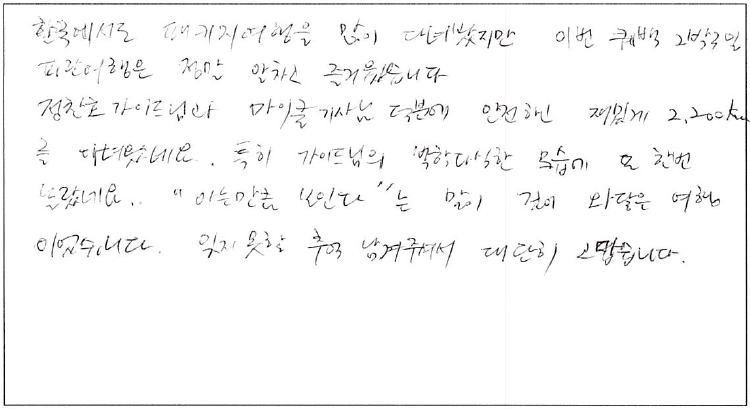 한국에서도 패키지여행을 많이 다녀봤지만 이번 퀘벡 2박3일
여행은 정말 알차고 즐거웠습니다
정찬호 가이드님과 마이클 기사님 덕분에 안전하고 재밌게 2,200km
를 다녀왔네요. 특히 가이드님의 박학다식한 모습에 또 한번
놀랐네요.. "아는만큼 보인다"는 말이 깊이 와닿은 여행
이었습니다. 잊지못할 추억 남겨주셔서 대단히 고맙습니다.